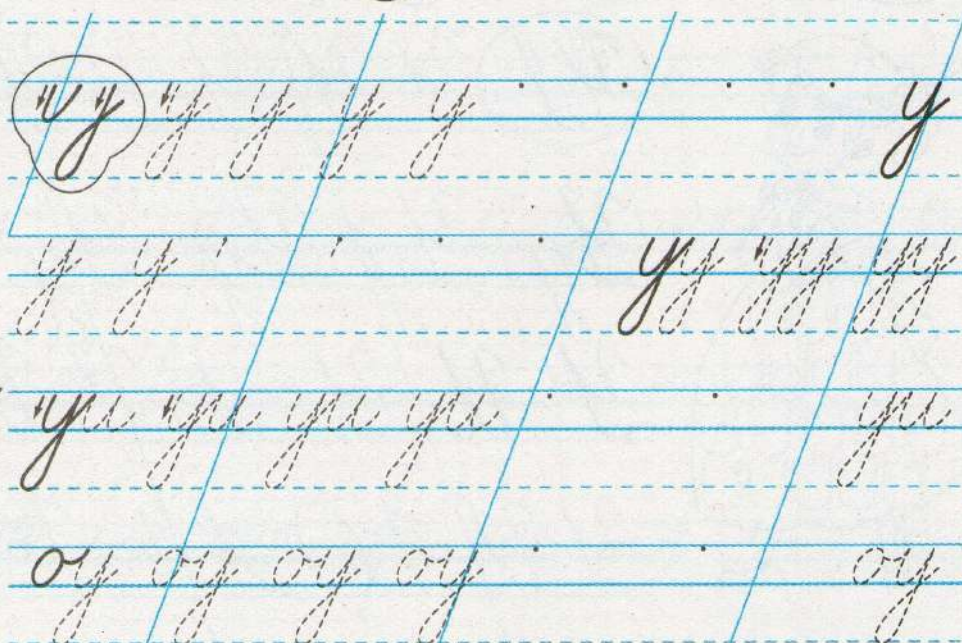 у у у у у у
у у уу уу уу
уи уи уи уи уи
оу оу оу оу оу